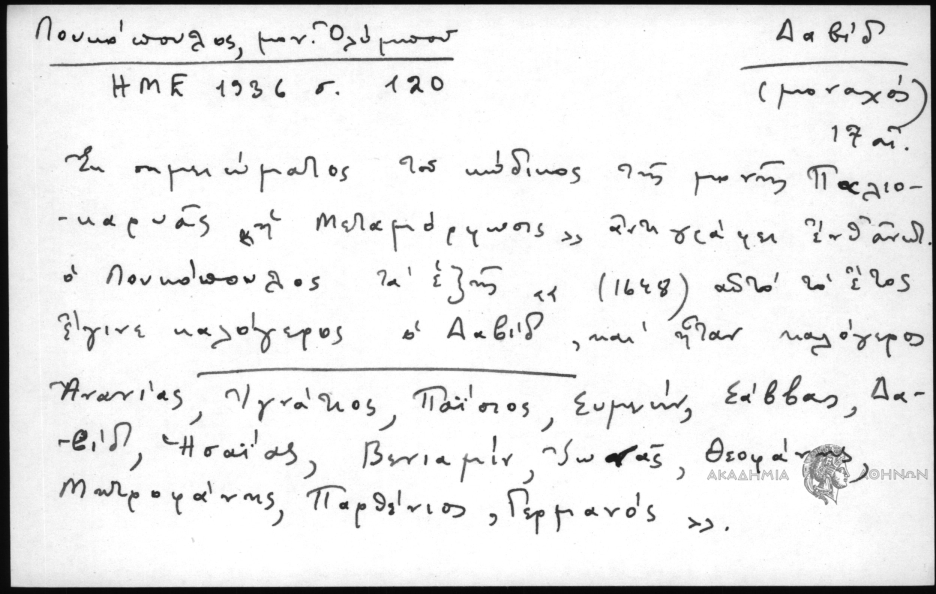 Λουκόπουλος, μον. Ὀλύμπου
ΗΜΕ 1936 σ. 120
Δαβίδ
(μοναχός)
17 αἰ.
Ἐκ σημειώματος τοῦ κώδικος τῆς μονῆς Παλιο-
-καρυᾶς «ἡ Μεταμόρφωσις» ἀντιγράφει ἐνθ' ἀνωτ.
ὁ Λουκόπουλος τά ἑξῆς « (1648) αὐτό τό ἔτος
ἔγινε καλόγερος ὁ Δαβίδ, καί ἦταν καλόγεροι
Ἀνανίας, Ἰγνάτιος, Παΐσιος, Συμεών, Σάββας, Δα-
-βίδ, Ἡσαΐας, Βενιαμίν, Ἰωνᾶς, Θεοφάνης,
Μητροφάνης, Παρθένιος, Γερμανός ».
ΑΚΑΔΗΜΙΑ ΑΘΗΝΩΝ